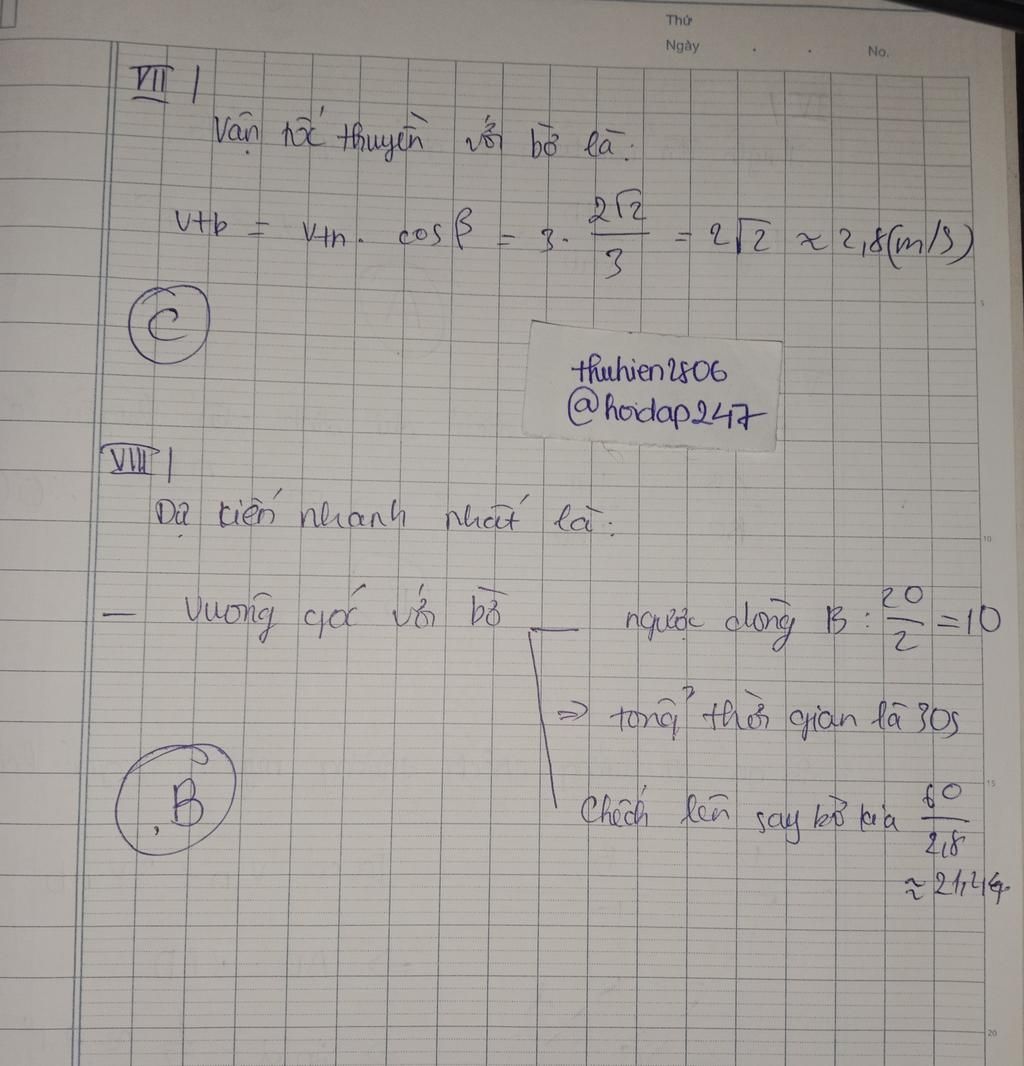 Thứ
Ngày . . No.
VII |
Vận tốc thuyền với bờ là:
vtb = vtn. cos β = 3. 2√2/3 = 2√2 ≈ 2,8(m/s)
C
thuhien2806
@hoidap247
VIII |
Dự kiến nhanh nhất là:
— Vuông góc với bờ — ngược dòng B: 20/2 = 10
=> tổng thời gian là 30s
Chếch lên say bờ kia 60/2,8
≈ 21,44
B
5
10
15
20